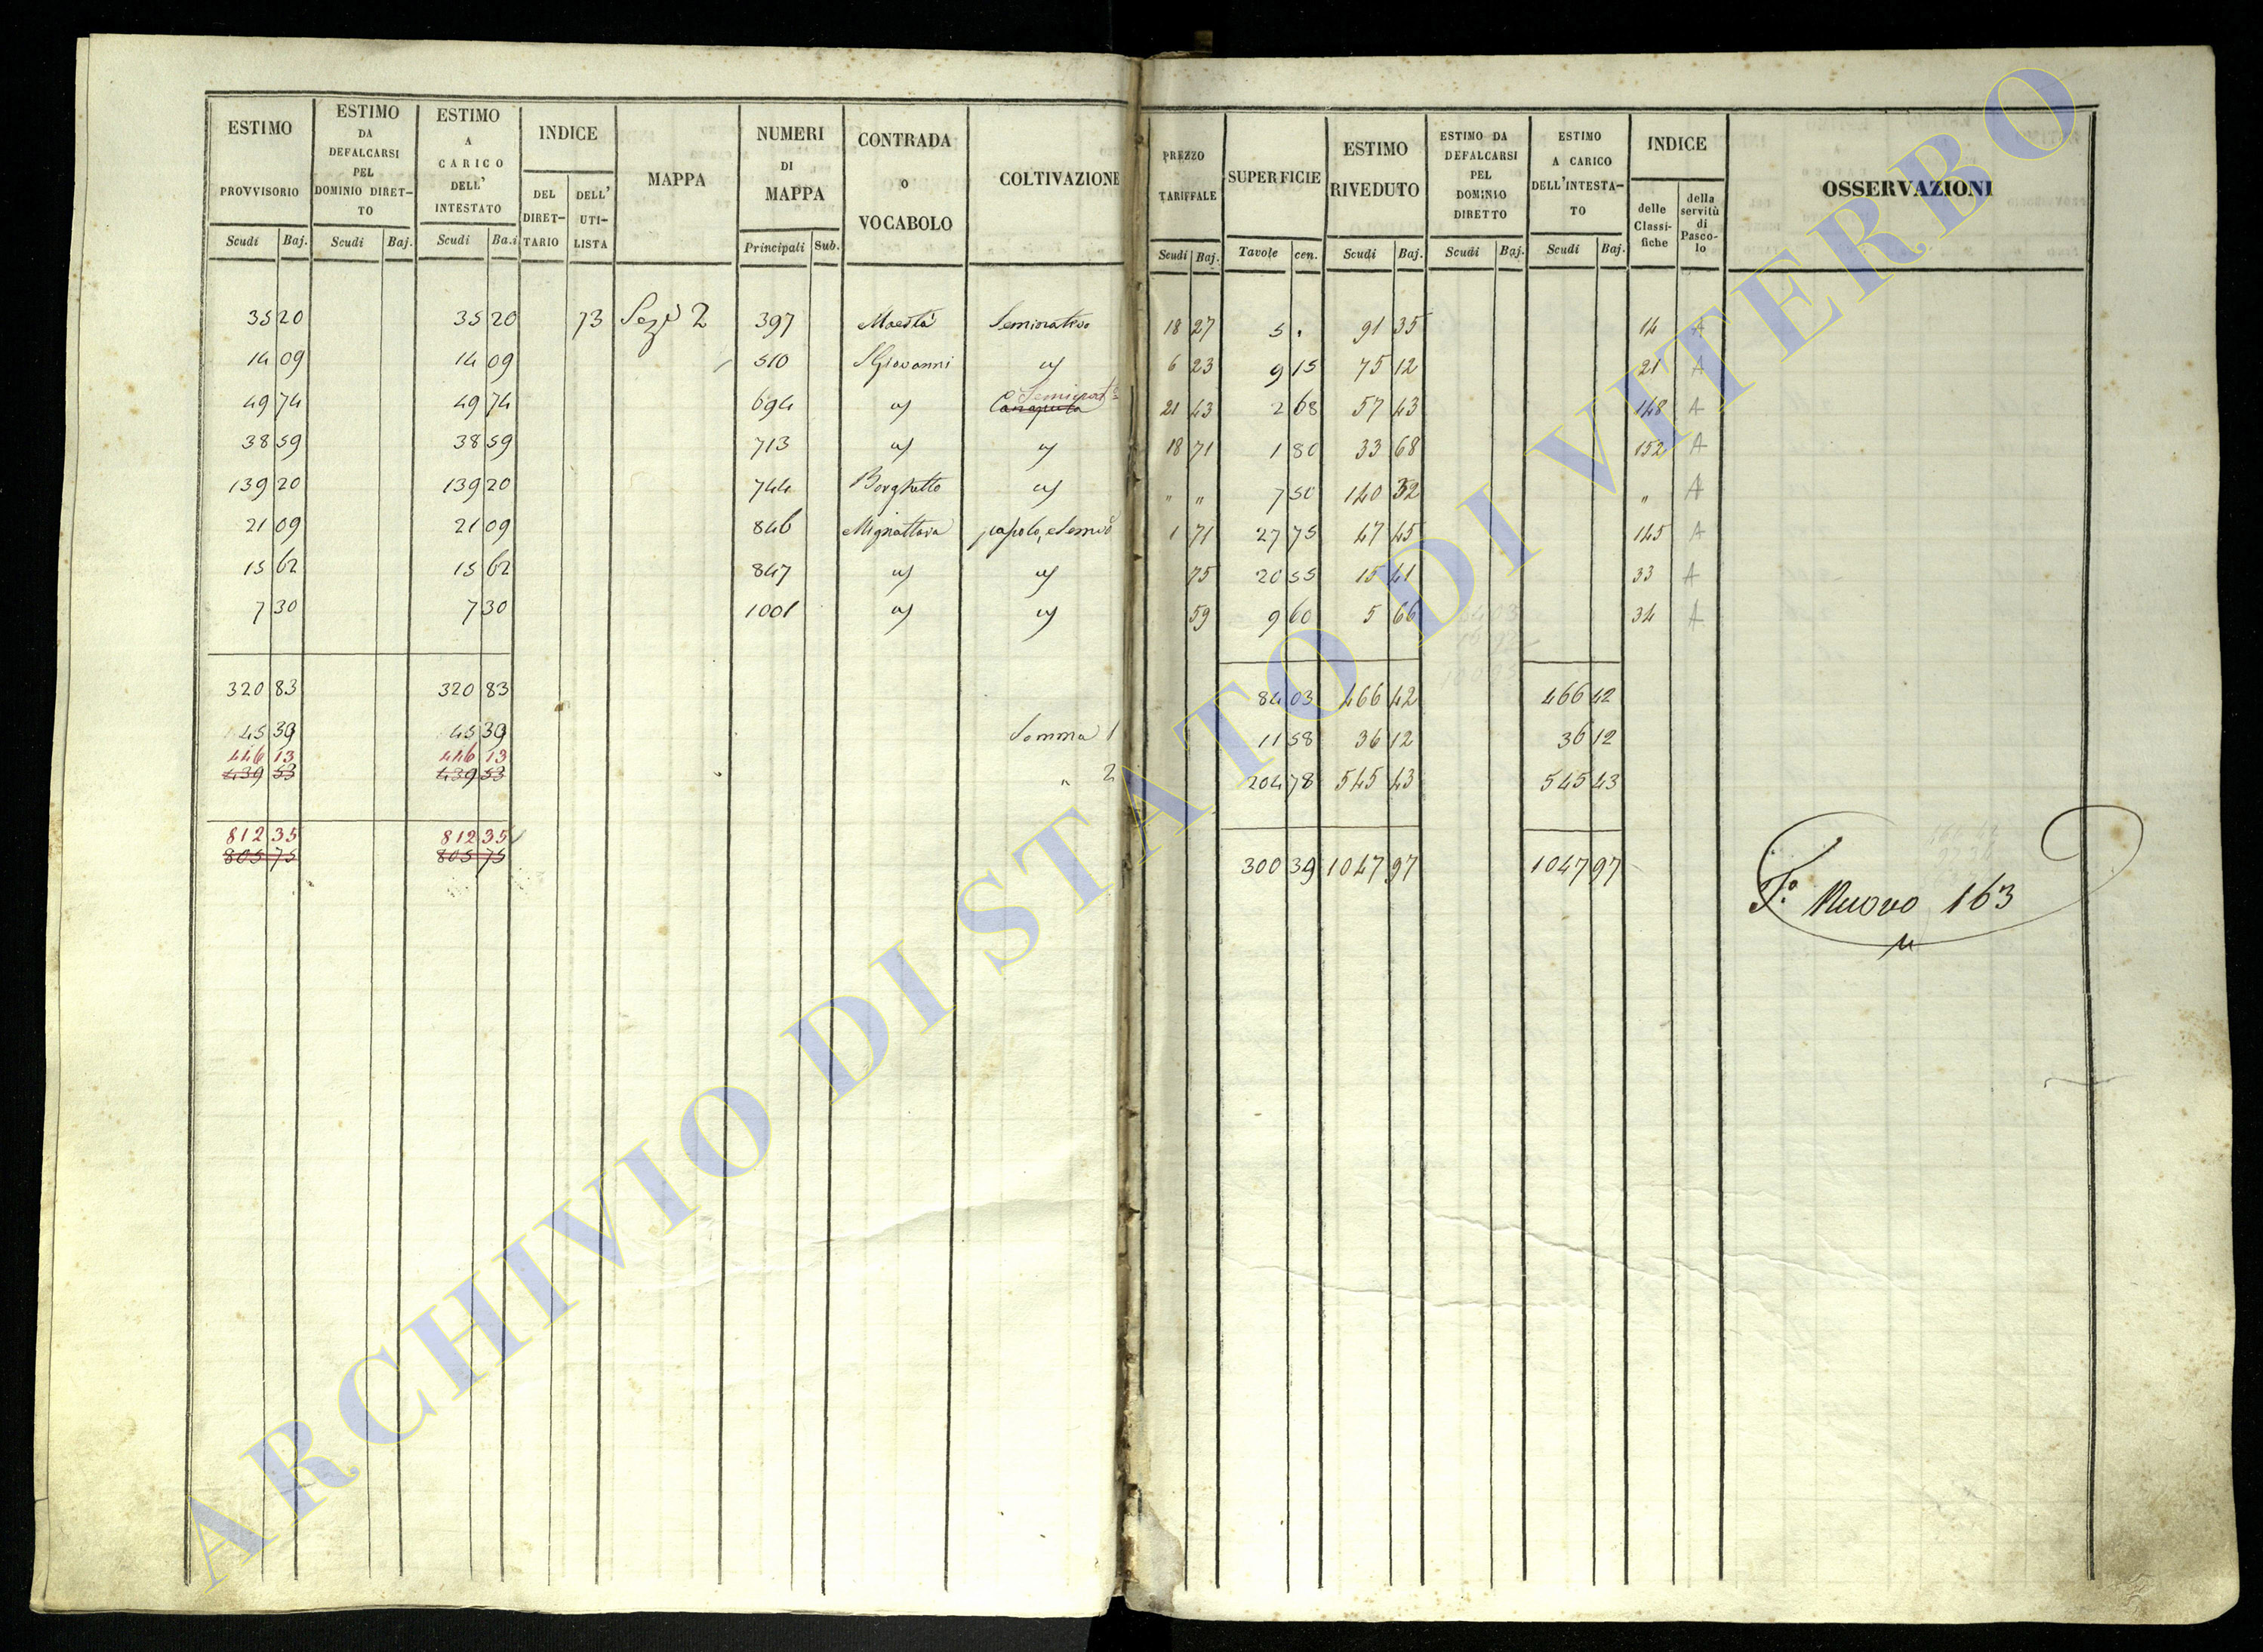 ESTIMO PROVVISORIO Scudi Baj. ESTIMO DA DEFALCARSI PEL DOMINIO DIRETTO Scudi Baj. ESTIMO A CARICO DELL' INTESTATO Scudi Ba.i INDICE DEL DIRET-TARIO DELL' UTI-LISTA MAPPA NUMERI DI MAPPA Principali Sub. CONTRADA o VOCABOLO COLTIVAZIONE PREZZO TARIFFALE Scudi Baj. SUPERFICIE Tavole cen. ESTIMO RIVEDUTO Scudi Baj. ESTIMO DA DEFALCARSI PEL DOMINIO DIRETTO Scudi Baj. ESTIMO A CARICO DELL'INTESTA-TO Scudi Baj. INDICE delle Classi-fiche della servitù di Pasco-lo OSSERVAZIONI
35 20 35 20 73 Seze 2 397 Maestà Seminativo 18 27 5 . 91 35 14 A
14 09 14 09 510 S Giovanni 6 23 9 15 75 12 21 A
49 74 49 74 694 Seminat 21 43 2 68 57 43 148 A
38 59 38 59 713 18 71 1 80 33 68 152 A
139 20 139 20 744 Borghetto " " 7 50 140 32 " A
21 09 21 09 846 Mignattara 1 71 27 75 47 45 145 A
15 62 15 62 847 75 20 55 15 41 33 A
7 30 7 30 1001 59 9 60 5 66 34 A
320 83 320 83 84 03 466 42 466 42
45 39 45 39 Somma 1 11 58 36 12 36 12
446 13 446 13
439 53 439 53 " 2 204 78 545 43 545 43
812 35 812 35
805 75 805 75 300 39 1047 97 1047 97
F.o Nuovo 163
ARCHIVIO DI STATO DI VITERBO